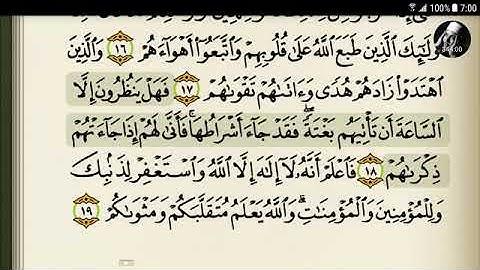 100% 7:00
أُو۟لَٰٓئِكَ ٱلَّذِينَ طَبَعَ ٱللَّهُ عَلَىٰ قُلُوبِهِمْ وَٱتَّبَعُوٓا۟ أَهْوَآءَهُمْ ١٦ وَٱلَّذِينَ
ٱهْتَدَوْا۟ زَادَهُمْ هُدًى وَءَاتَىٰهُمْ تَقْوَىٰهُمْ ١٧ فَهَلْ يَنظُرُونَ إِلَّا
ٱلسَّاعَةَ أَن تَأْتِيَهُم بَغْتَةً ۖ فَقَدْ جَآءَ أَشْرَاطُهَا ۚ فَأَنَّىٰ لَهُمْ إِذَا جَآءَتْهُمْ
ذِكْرَىٰهُمْ ١٨ فَٱعْلَمْ أَنَّهُۥ لَآ إِلَٰهَ إِلَّا ٱللَّهُ وَٱسْتَغْفِرْ لِذَنۢبِكَ
وَلِلْمُؤْمِنِينَ وَٱلْمُؤْمِنَٰتِ ۗ وَٱللَّهُ يَعْلَمُ مُتَقَلَّبَكُمْ وَمَثْوَىٰكُمْ ١٩